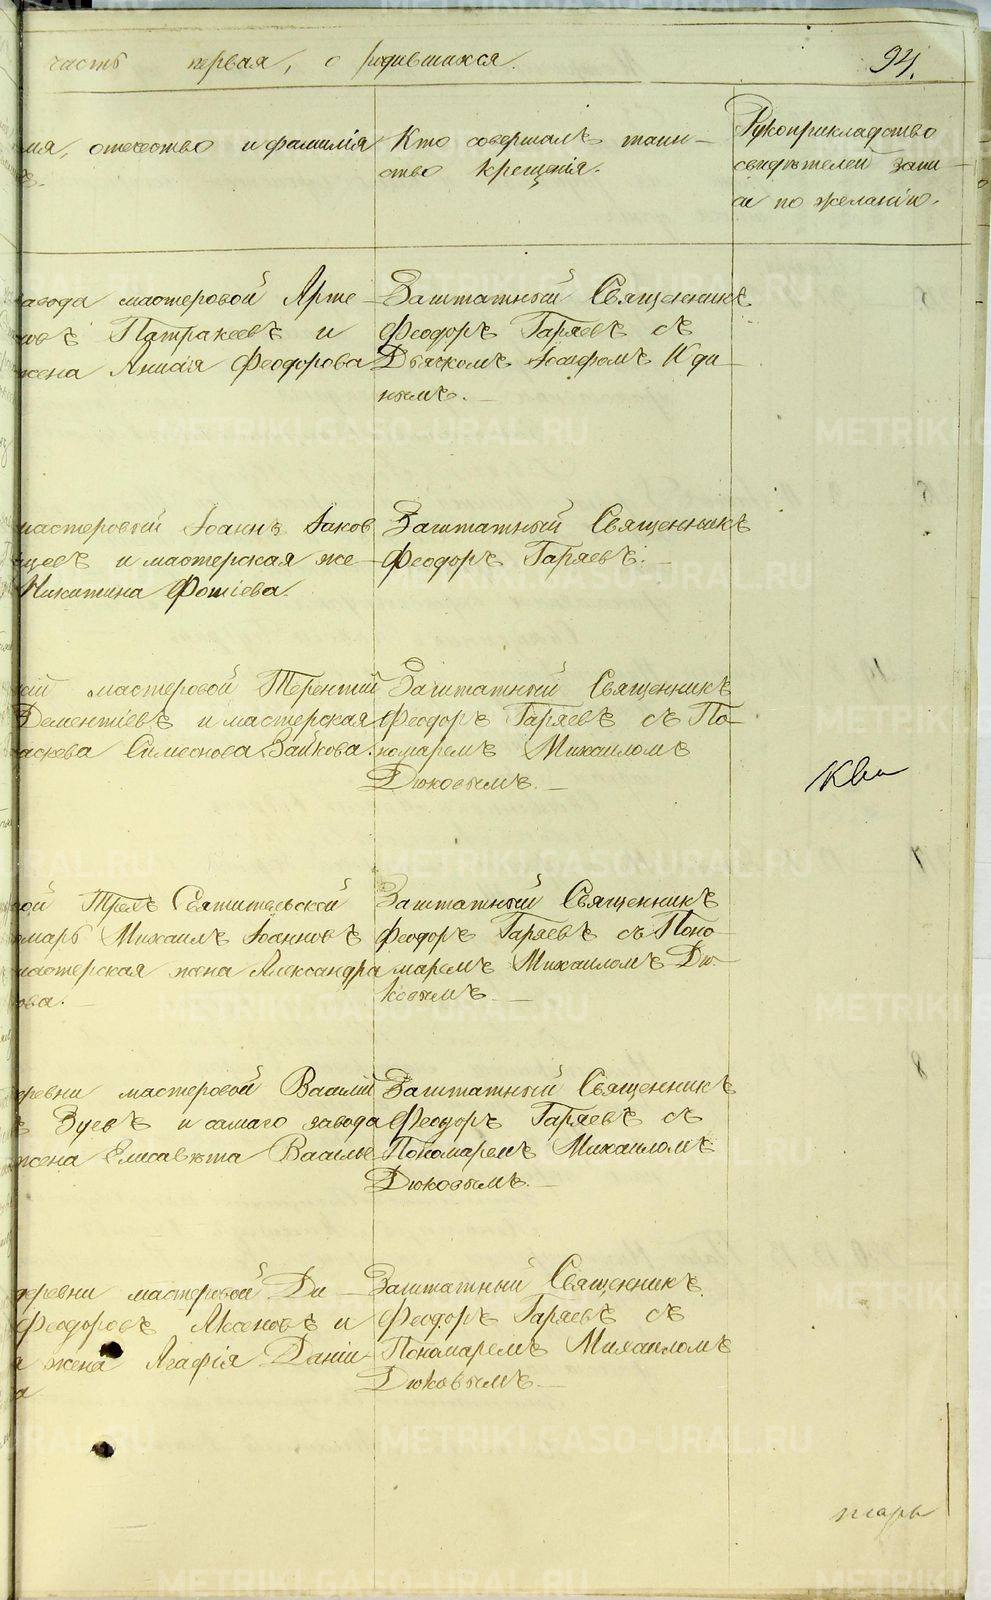 часть первая, о родившихся.
94.
мя, отечество и фамилія
Кто совершалъ таин-
ство крещенія.
Рукоприкладство
свидѣтелей запи-
си по желанію.
завода мастеровой Арте-
новъ Патракеевъ и
жена Анисія Феодорова
Заштатный Священникъ
Феодоръ Гаряевъ съ
Дьячкомъ Іосифомъ Куди-
нымъ.
мастеровый Іоаннъ Іаков
и мастерская же-
Никитина Фотіева.
Заштатный Священникъ
Феодоръ Гаряевъ.
мастеровой Терентий
Дементіевъ и мастерская
Симеонова Зайкова.
Заштатный Священникъ
Феодоръ Гаряевъ съ По-
номаремъ Михаиломъ
Дюковымъ.
Трехъ Святительской
марь Михаилъ Іоанновъ
мастерская жена Александра
ова.
Заштатный Священникъ
Феодоръ Гаряевъ съ Поно-
маремъ Михаиломъ Дю-
ковымъ.
деревни мастеровой Василій
Зуевъ и самаго завода
жена Елисавета Василье
Заштатный Священникъ
Феодоръ Гаряевъ съ
Пономаремъ Михаиломъ
Дюковымъ.
деревни мастеровой Ди-
Феодоровъ Аксеновъ и
жена Агафія Даніи-
а
Заштатный Священникъ
Феодоръ Гаряевъ съ
Пономаремъ Михаиломъ
Дюковымъ.
METRIKI.GASO-URAL.RU